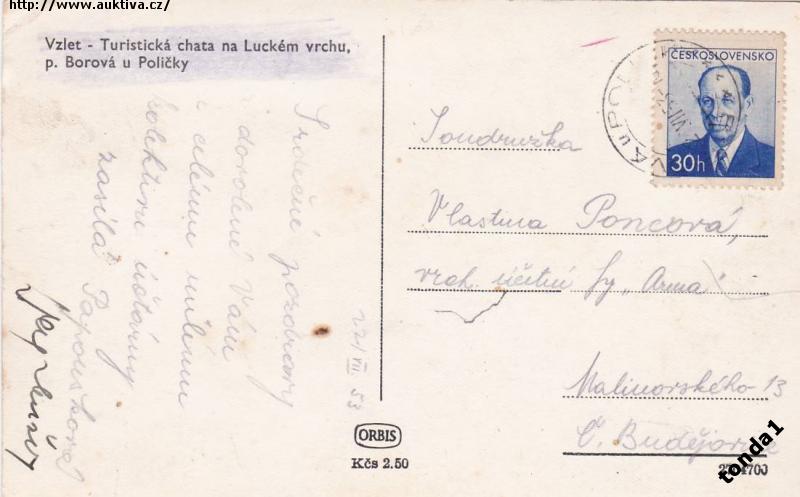 http://www.auktiva.cz/
Vzlet - Turistická chata na Luckém vrchu,
p. Borová u Poličky
ČESKOSLOVENSKO
30h
Srdečné pozdravy
z dovolené Vám
i celému milému
kolektivu účtárny
zasílá Papoušková
22/VII 53
Soudružka
Vlastina Poncová,
vrch. účetní fy „Arma"
Malinovského 13
Č. Budějovice
ORBIS
Kčs 2.50
tonda1